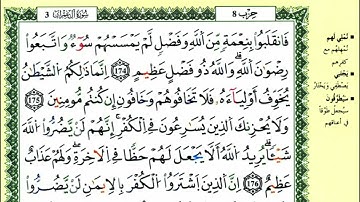 حزب 8
سُورَةُ آلِ عِمْرَان 3
فَٱنقَلَبُوا۟ بِنِعْمَةٍ مِّنَ ٱللَّهِ وَفَضْلٍ لَّمْ يَمْسَسْهُمْ سُوٓءٌ وَٱتَّبَعُوا۟
رِضْوَٰنَ ٱللَّهِ وَٱللَّهُ ذُو فَضْلٍ عَظِيمٍ 174 إِنَّمَا ذَٰلِكُمُ ٱلشَّيْطَٰنُ
يُخَوِّفُ أَوْلِيَآءَهُۥ فَلَا تَخَافُوهُمْ وَخَافُونِ إِن كُنتُم مُّؤْمِنِينَ 175
وَلَا يَحْزُنكَ ٱلَّذِينَ يُسَٰرِعُونَ فِى ٱلْكُفْرِ إِنَّهُمْ لَن يَضُرُّوا۟ ٱللَّهَ
شَيْـًٔا يُرِيدُ ٱللَّهُ أَلَّا يَجْعَلَ لَهُمْ حَظًّا فِى ٱلْءَاخِرَةِ وَلَهُمْ عَذَابٌ
عَظِيمٌ 176 إِنَّ ٱلَّذِينَ ٱشْتَرَوُا۟ ٱلْكُفْرَ بِٱلْإِيمَٰنِ لَن يَضُرُّوا۟
نُمْلِي لَهُم
كفرهم
يَجْتَبِي
سَيُطَوَّقُونَ
في أعناقهم